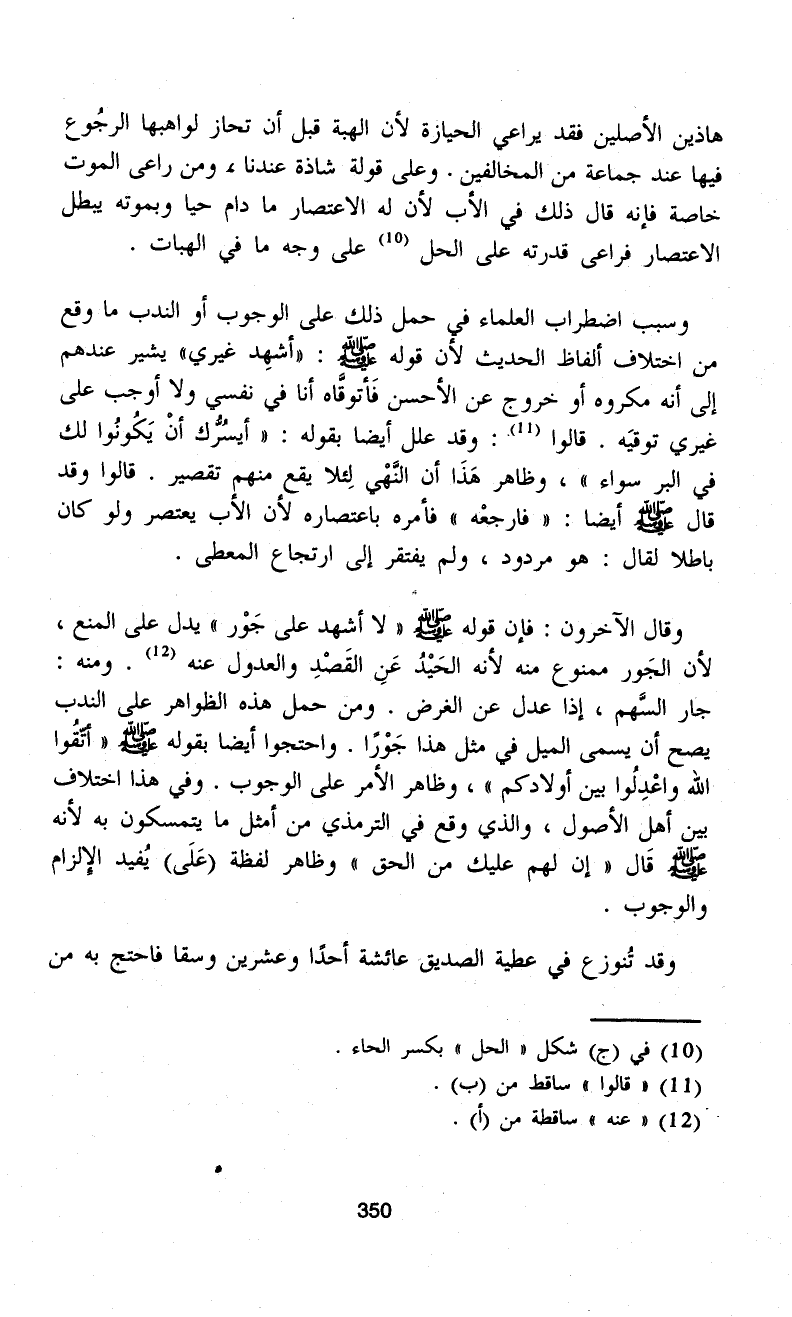 هاذين الأصلين فقد يراعي الحيازة لأن الهبة قبل أن تحاز لواهبها الرجُوع
فيها عند جماعة من المخالفين . وعلى قولة شاذة عندنا ، ومن راعى الموت
خاصة فإنه قال ذلك في الأب لأن له الاعتصار ما دام حيا وبموته يبطل
الاعتصار فراعى قدرته على الحل (10) على وجه ما في الهبات .
وسبب اضطراب العلماء في حمل ذلك على الوجوب أو الندب ما وقع
من اختلاف ألفاظ الحديث لأن قوله ﷺ : «أشهِد غيري» يشير عندهم
إلى أنه مكروه أو خروج عن الأحسن فَأتوقَّاه أنا في نفسي ولا أوجب على
غيري توقيَه . قالوا (11) : وقد علل أيضا بقوله : « أيسُرُّك أنْ يَكُونُوا لك
في البر سواء » ، وظاهر هَذَا أن النَّهْي لِئلا يقع منهم تقصير . قالوا وقد
قال ﷺ أيضا : « فارجعْه » فأمره باعتصاره لأن الأب يعتصر ولو كان
باطلا لقال : هو مردود ، ولم يفتقر إلى ارتجاع المعطى .
وقال الآخرون : فإن قوله ﷺ « لا أشهد على جَوْر » يدل على المنع ،
لأن الجَور ممنوع منه لأنه الحَيْدُ عَنِ القَصْدِ والعدول عنه (12) . ومنه :
جار السَّهم ، إذا عدل عن الغرض . ومن حمل هذه الظواهر على الندب
يصح أن يسمى الميل في مثل هذا جَوْرًا . واحتجوا أيضا بقوله ﷺ « أتَّقُوا
الله واعْدِلُوا بين أولادكم » ، وظاهر الأمر على الوجوب . وفي هذا اختلاف
بين أهل الأصول ، والذي وقع في الترمذي من أمثل ما يتمسكون به لأنه
ﷺ قَال « إن لهم عليك من الحق » وظاهر لفظة (عَلَى) يُفيد الإلزام
والوجوب .
وقد تُنوزع في عطية الصديق عائشة أحدًا وعشرين وسقا فاحتج به من
(10) في (ج) شكل « الحل » بكسر الحاء .
(11) « قالوا » ساقط من (ب) .
(12) « عنه » ساقطة من (أ) .
350